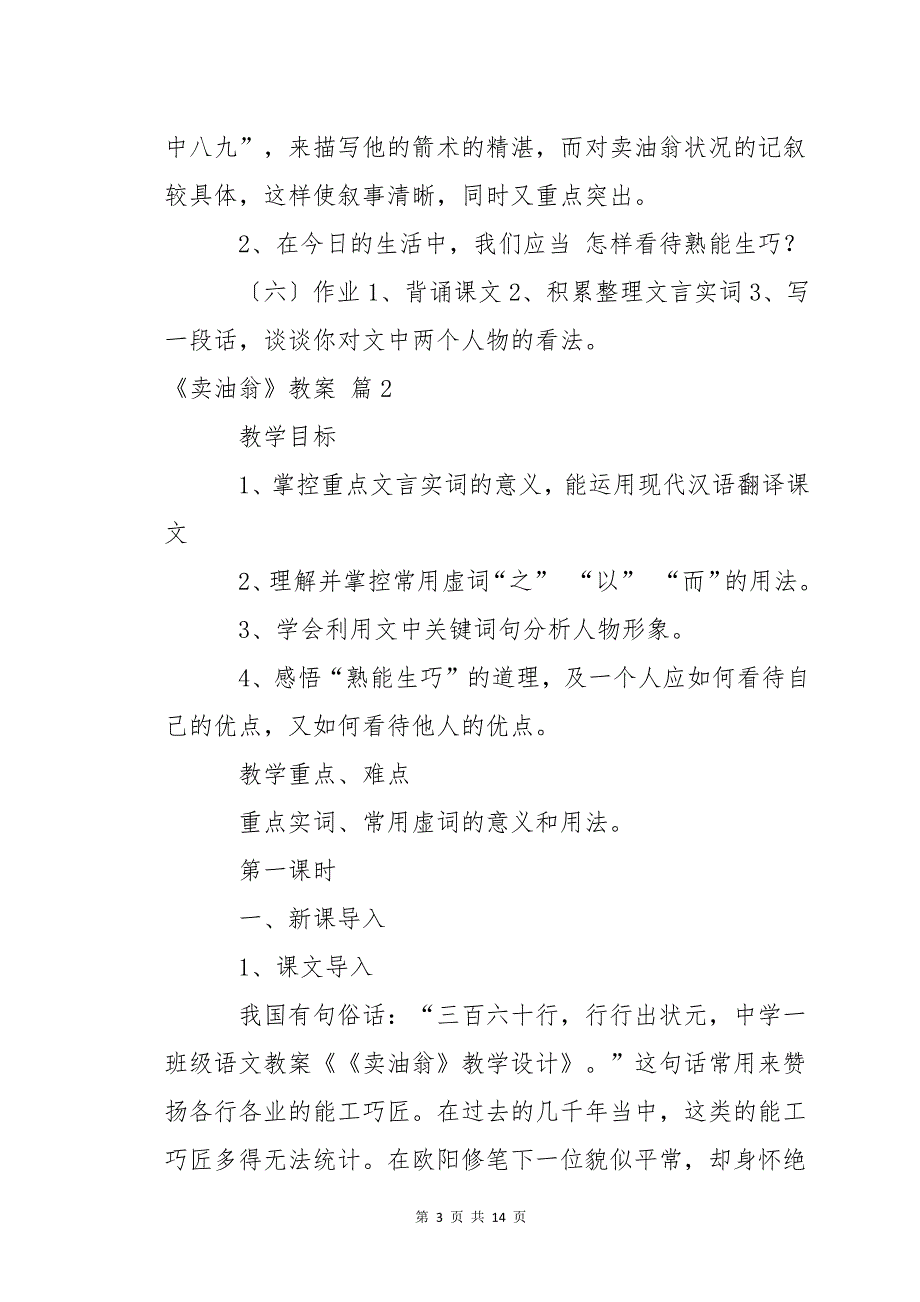 中八九”，来描写他的箭术的精湛，而对卖油翁状况的记叙
较具体，这样使叙事清晰，同时又重点突出。
2、在今日的生活中，我们应当 怎样看待熟能生巧？
〔六〕作业 1、背诵课文 2、积累整理文言实词 3、写
一段话，谈谈你对文中两个人物的看法。
《卖油翁》教案 篇 2
教学目标
1、掌控重点文言实词的意义，能运用现代汉语翻译课
文
2、理解并掌控常用虚词“之” “以” “而”的用法。
3、学会利用文中关键词句分析人物形象。
4、感悟“熟能生巧”的道理，及一个人应如何看待自
己的优点，又如何看待他人的优点。
教学重点、难点
重点实词、常用虚词的意义和用法。
第一课时
一、新课导入
1、课文导入
我国有句俗话：“三百六十行，行行出状元，中学一
班级语文教案《《卖油翁》教学设计》。”这句话常用来赞
扬各行各业的能工巧匠。在过去的几千年当中，这类的能工
巧匠多得无法统计。在欧阳修笔下一位貌似平常，却身怀绝
第 3 页 共 14 页